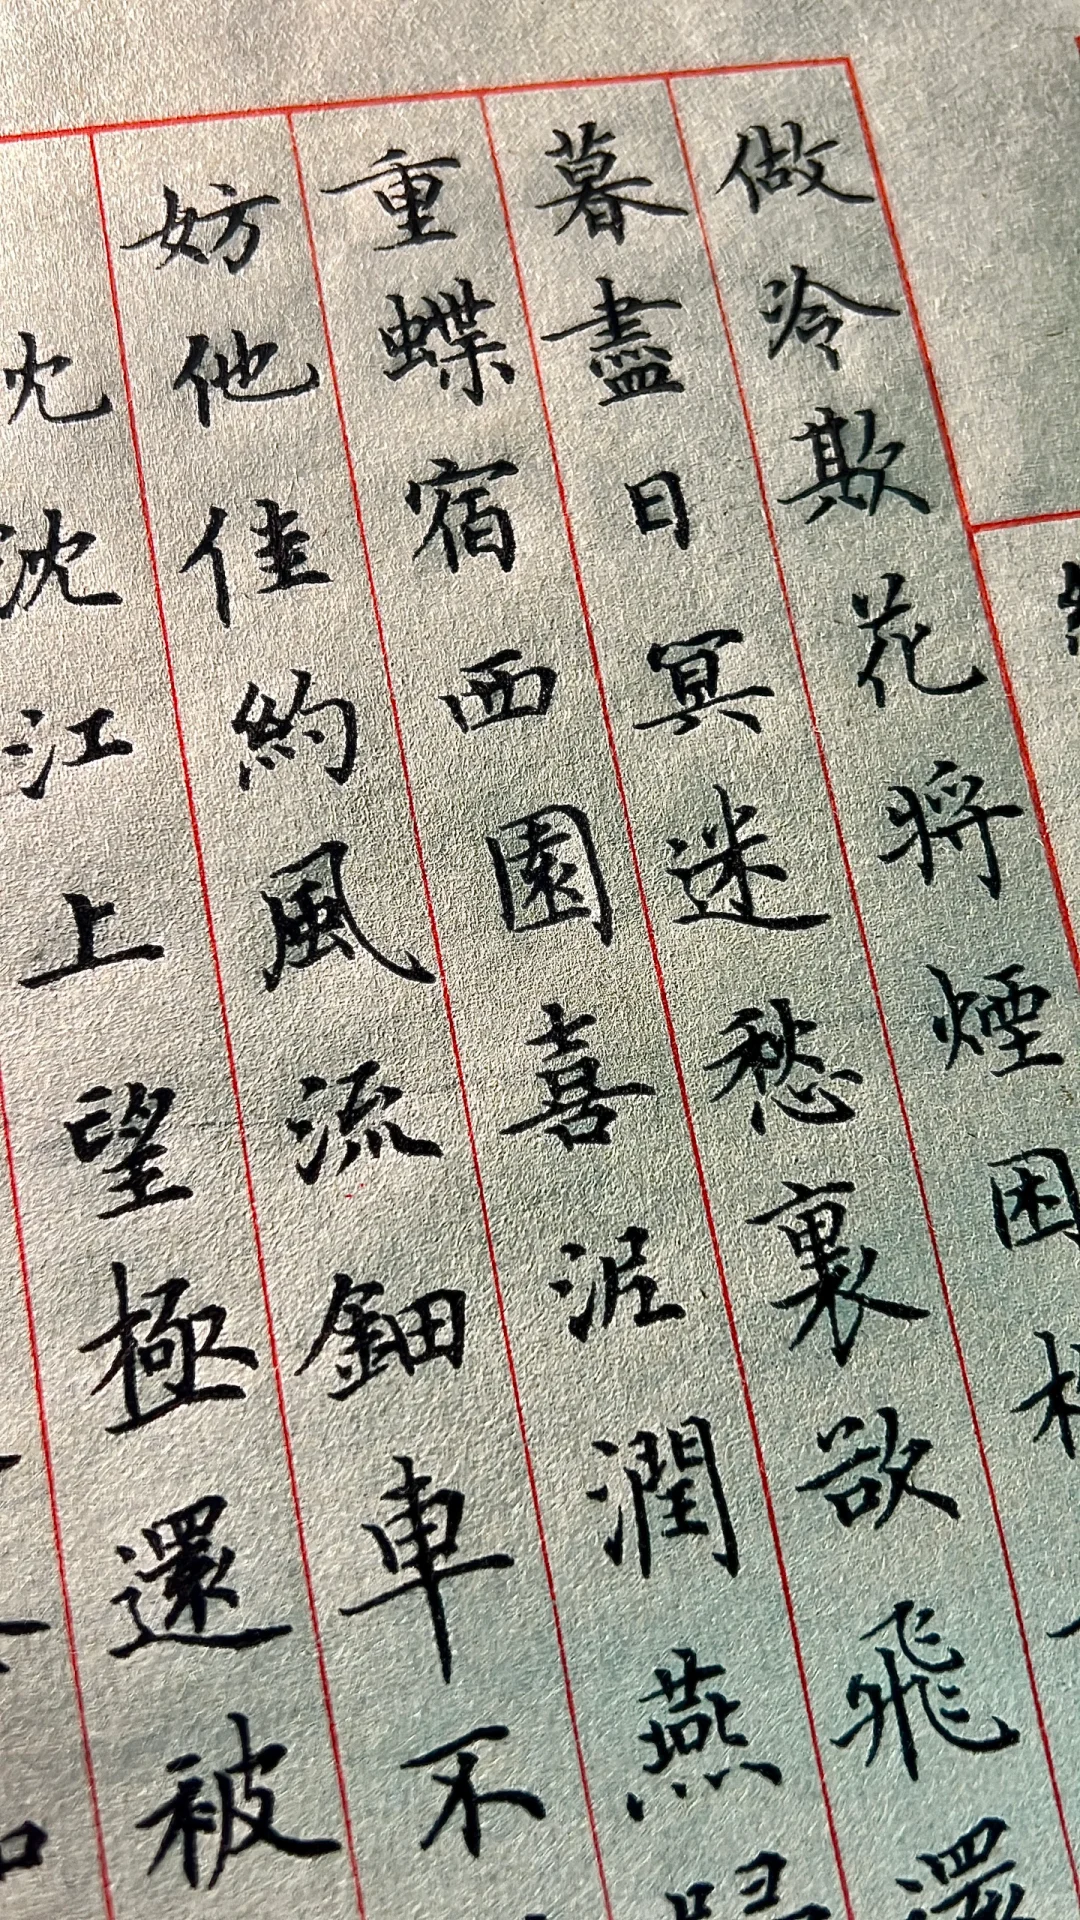 做冷欺花將煙困
暮盡日冥迷愁裏欲飛還
重蝶宿西園喜泥潤燕歸
妨他佳約風流鈿車不
沈沈江上望極還被